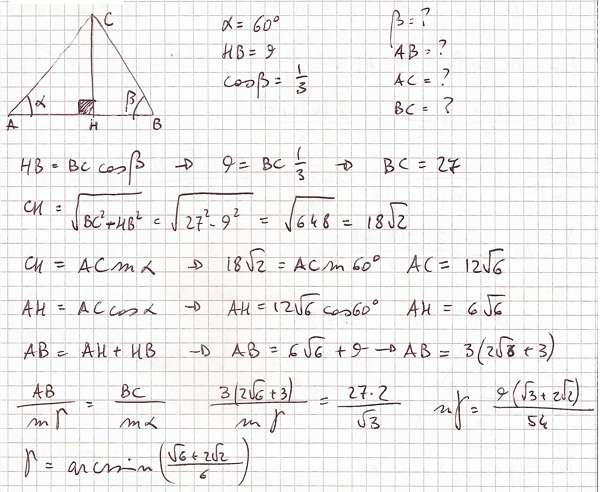 C
α = 60°
β = ?
HB = 9
AB = ?
cosβ = 1/3
AC = ?
BC = ?
α β
A H B
HB = BC cosβ → 9 = BC 1/3 → BC = 27
CH = √(BC²+HB²) = √(27²-9²) = √648 = 18√2
CH = AC sin α → 18√2 = AC sin 60° AC = 12√6
AH = AC cos α → AH = 12√6 cos60° AH = 6√6
AB = AH + HB → AB = 6√6 + 9 → AB = 3(2√6 + 3)
AB/sin γ = BC/sin α 3(2√6+3)/sin γ = 27·2/√3 sin γ = 9(√3+2√2)/54
γ = arcsin((√6+2√2)/6)